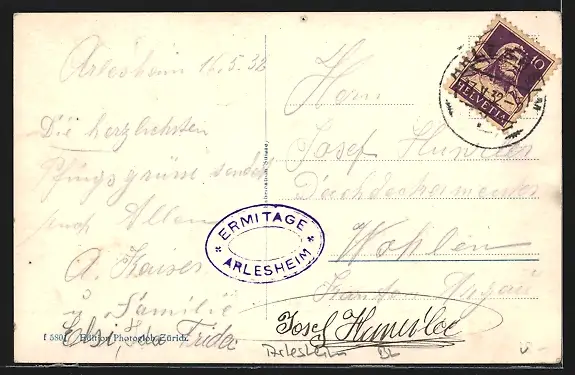 Arlesheim 16.5.32
Die herzlichsten
Pfingstgrüsse senden
Euch Allen
A. Kaiser
u. Familie
Elsi, Frida
f 5801 Edition Photoglob, Zürich
ERMITAGE
ARLESHEIM
10
HELVETIA
Herrn
Josef
Dachdeckermeister
Wohlen
Kanton Aargau
Josef
Arlesheim BL